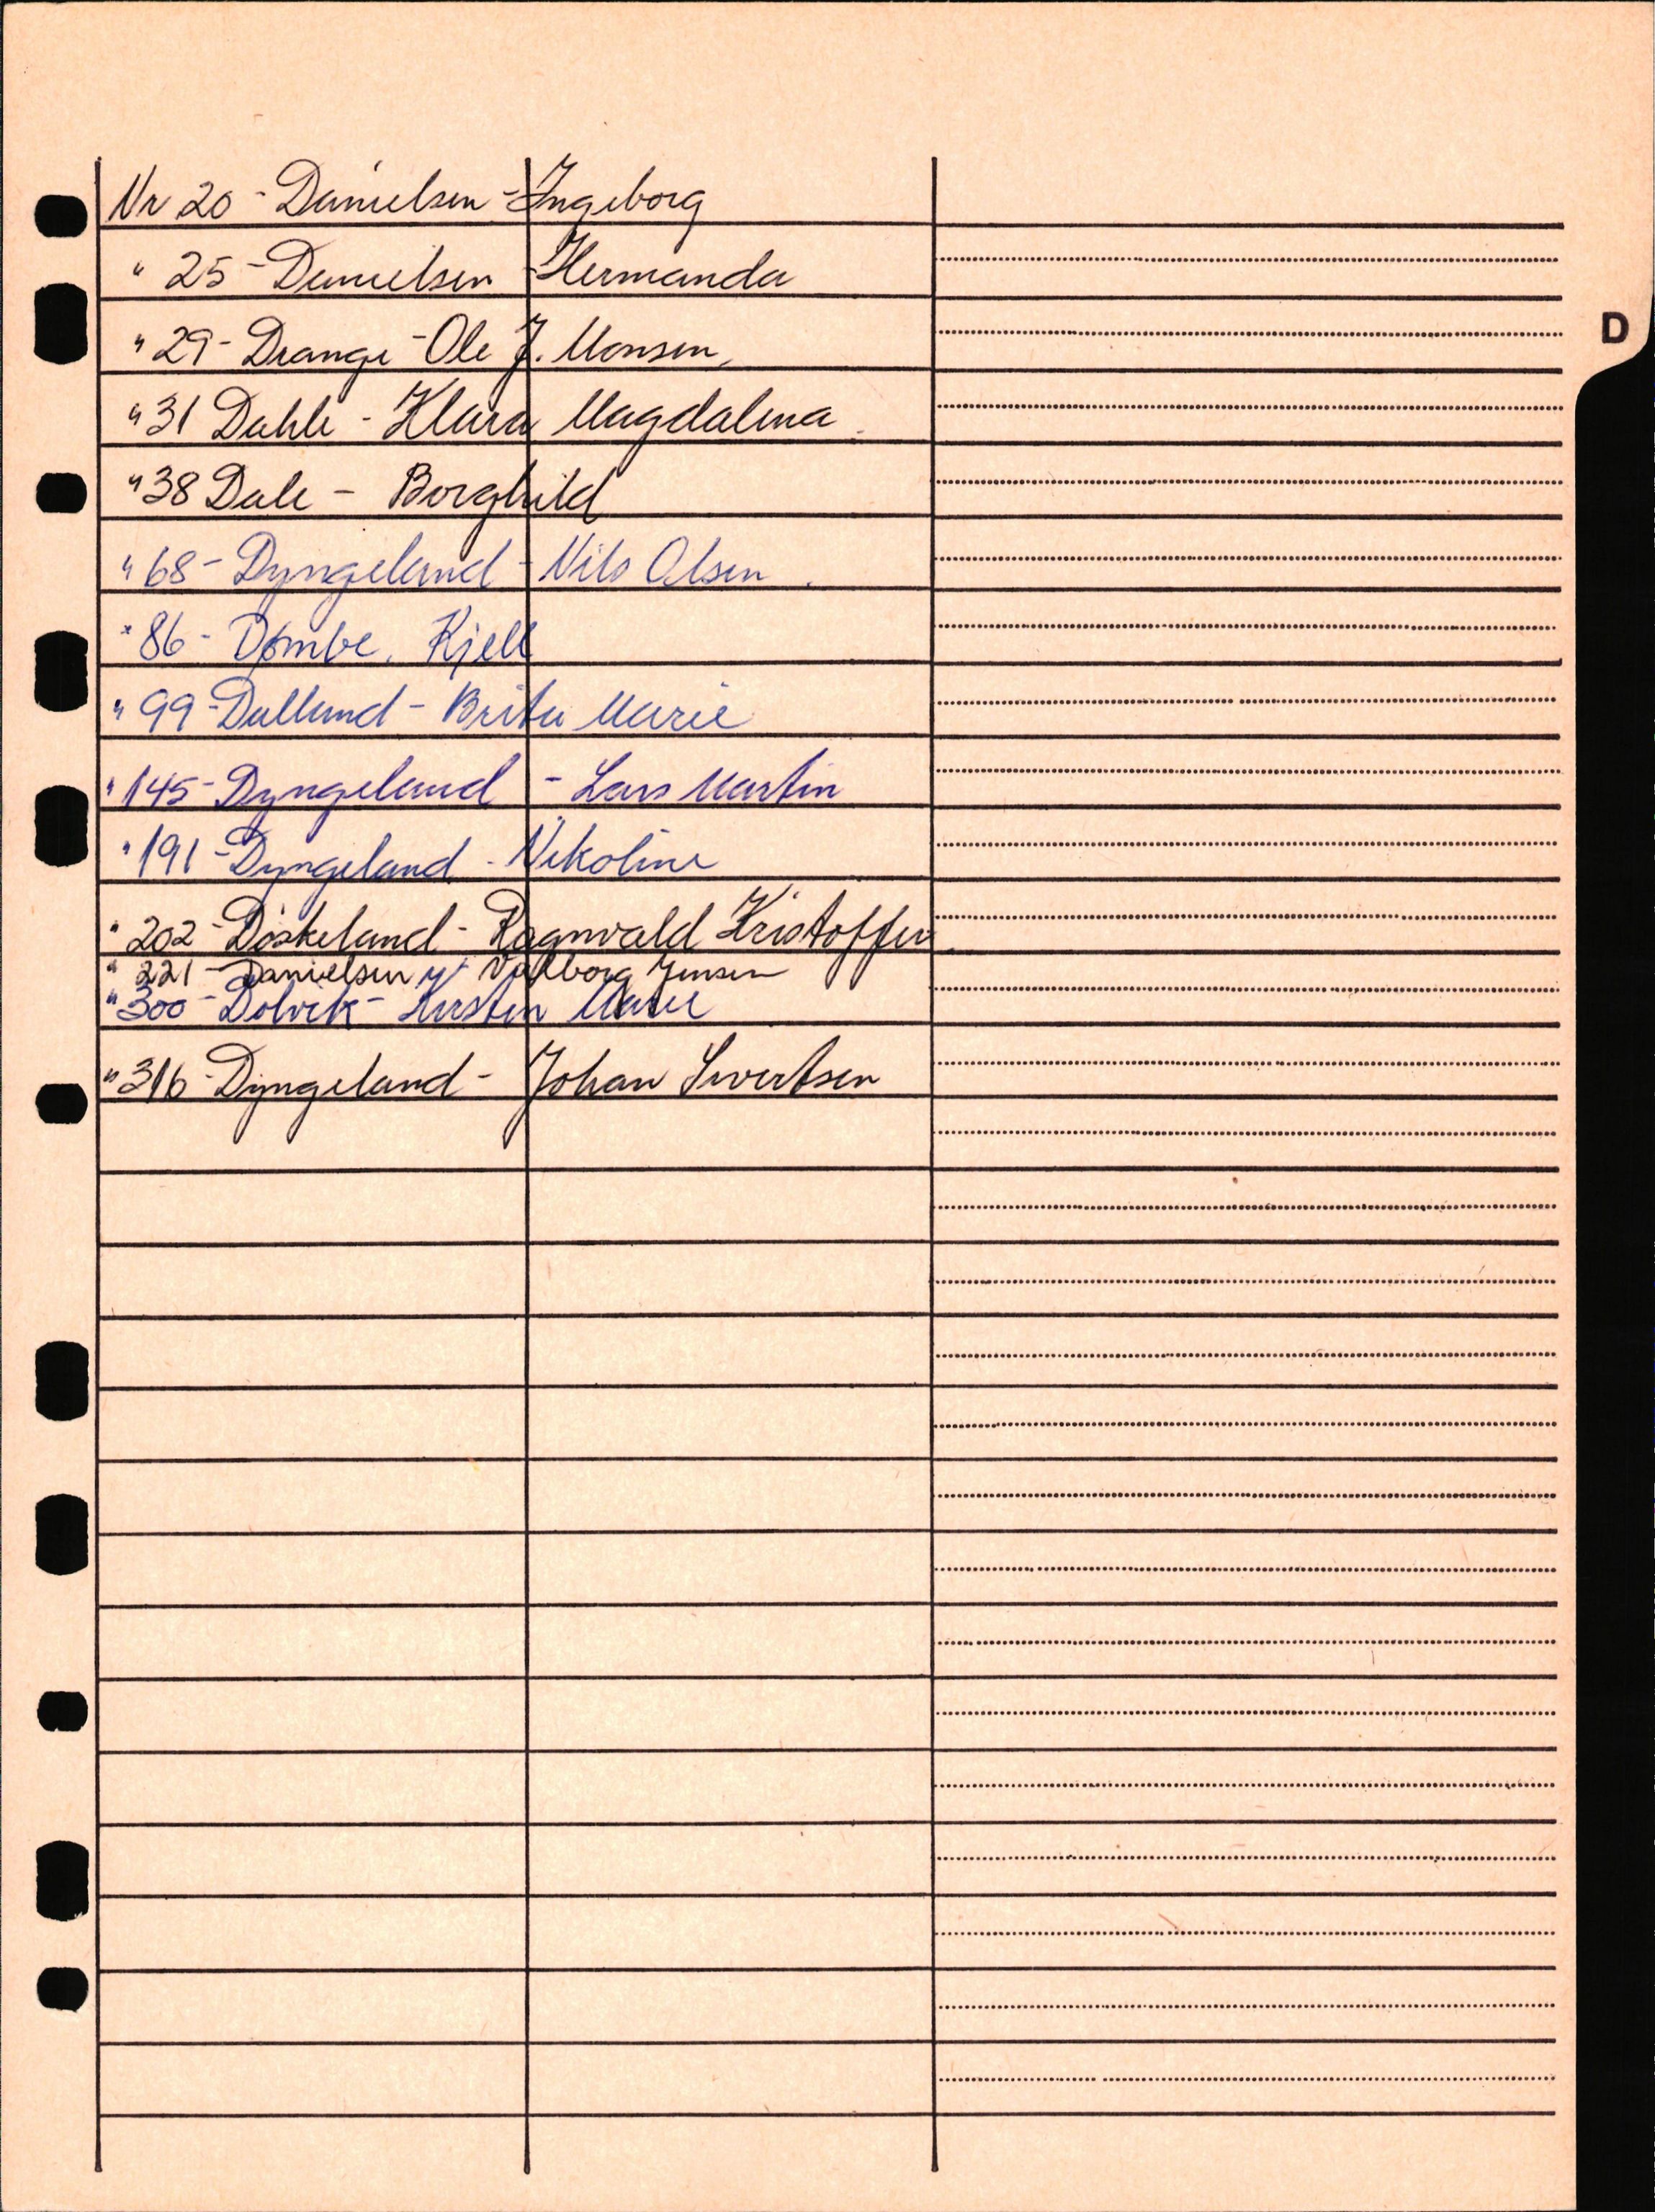 Nr 20 - Danielsen - Ingeborg
" 25 - Danielsen - Hermanda
D
" 29 - Drange - Ole J. Monsen,
" 31 Dahle - Klara Magdalena
" 38 Dale - Borghild
" 68 - Dyngeland - Nils Olsen.
" 86 - Dømbe, Kjell
" 99 - Dalland - Brita Marie
" 145 - Dyngeland - Lars Martin
" 191 - Dyngeland - Nikoline
" 202 - Døskeland - Ragnvald Kristoffer
" 221 - Danielsen Valborg Jensen
" 300 - Dolvik - Kirsten Marie
" 316 - Dyngeland - Johan Sivertsen